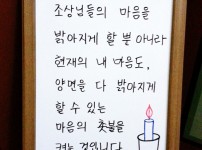 조상님들의 마음을
밝아지게 할 뿐 아니라
현재의 내 마음도,
양면을 다 밝아지게
할 수 있는
마음의 촛불을
켜는 것입니다